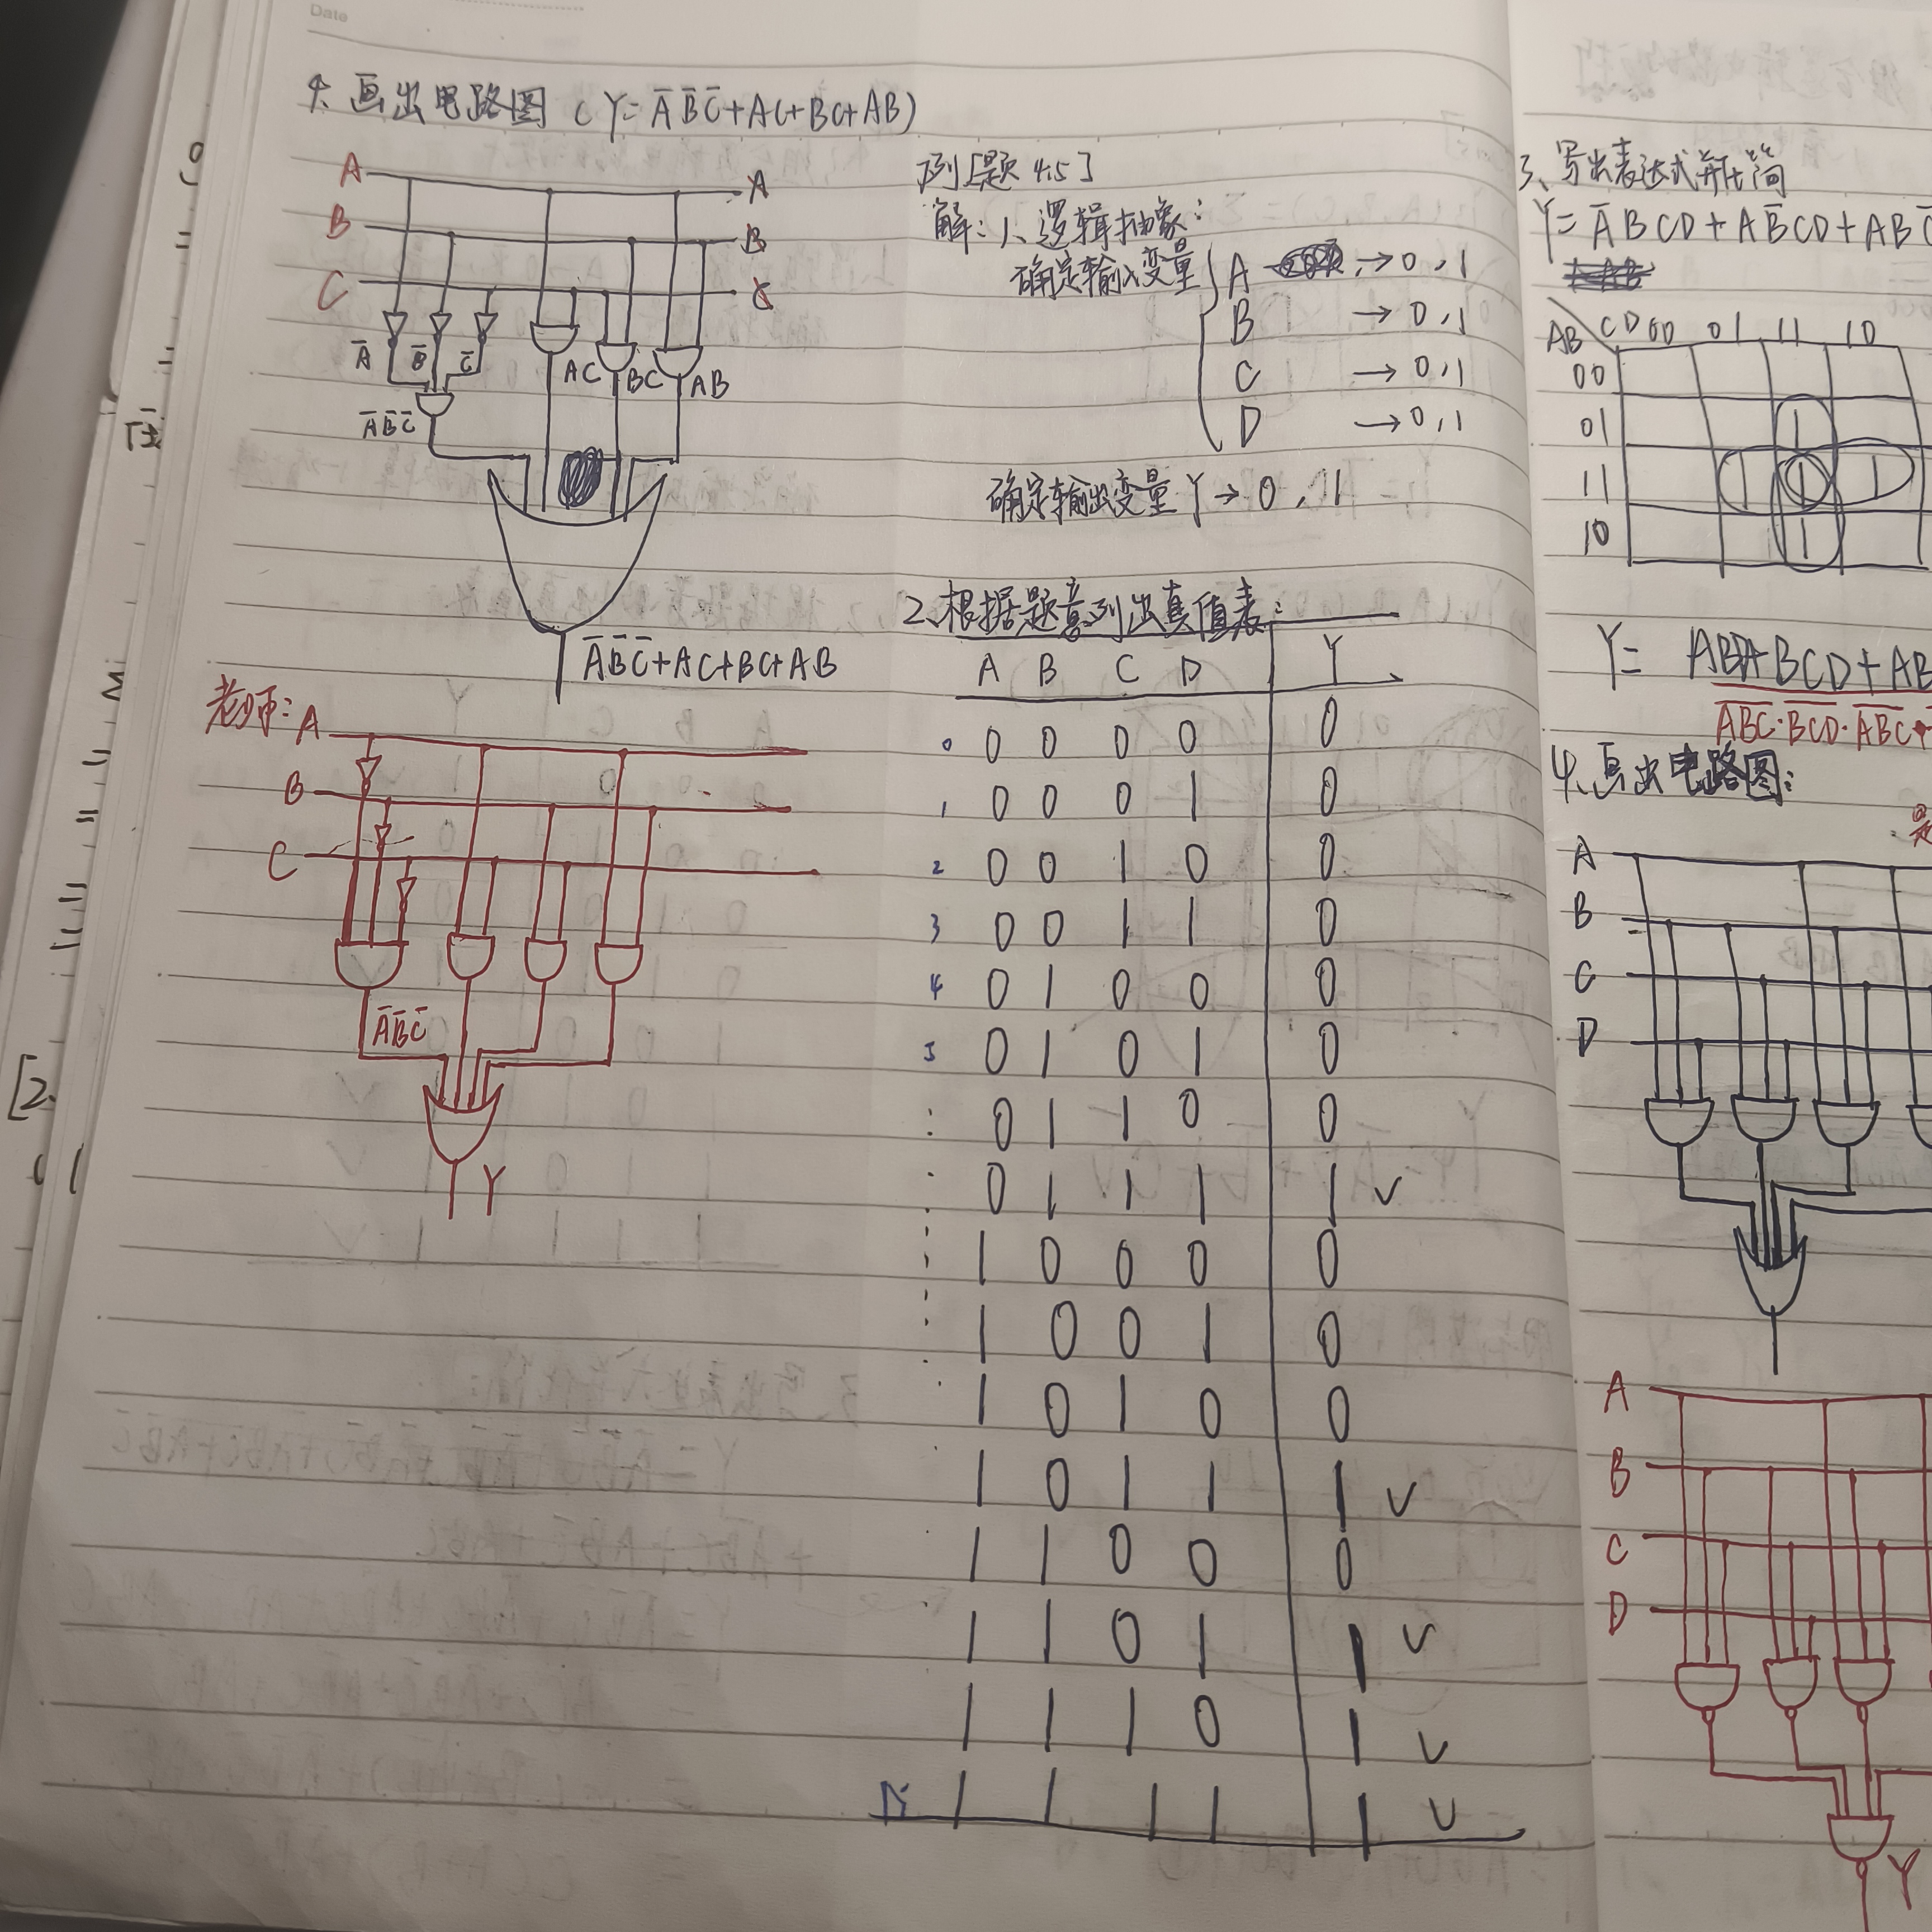 Date
4. 画出电路图 (Y=A̅ B̅ C̅+AC+BC+AB)
A A
B B
C C
A̅ B̅ C̅ AC BC AB
A̅ B̅ C̅
A̅ B̅ C̅+AC+BC+AB
老师: A
B
C
A̅ B̅ C̅
Y
例[题 4.5]
解: 1、逻辑抽象:
确定输入变量 A →0,1
B →0,1
C →0,1
D →0,1
确定输出变量 Y→0,1
2、根据题意列出真值表:
A B C D Y
0 0 0 0 0 0
1 0 0 0 1 0
2 0 0 1 0 0
3 0 0 1 1 0
4 0 1 0 0 0
5 0 1 0 1 0
0 1 1 0 0
0 1 1 1 1 ✓
1 0 0 0 0
1 0 0 1 0
1 0 1 0 0
1 0 1 1 1 ✓
1 1 0 0 0
1 1 0 1 1 ✓
1 1 1 0 1 ✓
1 1 1 1 1 ✓
3、写出表达式并化简
Y=A̅BCD+AB̅CD+ABC̅
AB CD 00 01 11 10
00
01 1
11 1 1 1
10 1
4、画出电路图:
A
B
C
D
A
B
C
D
Y